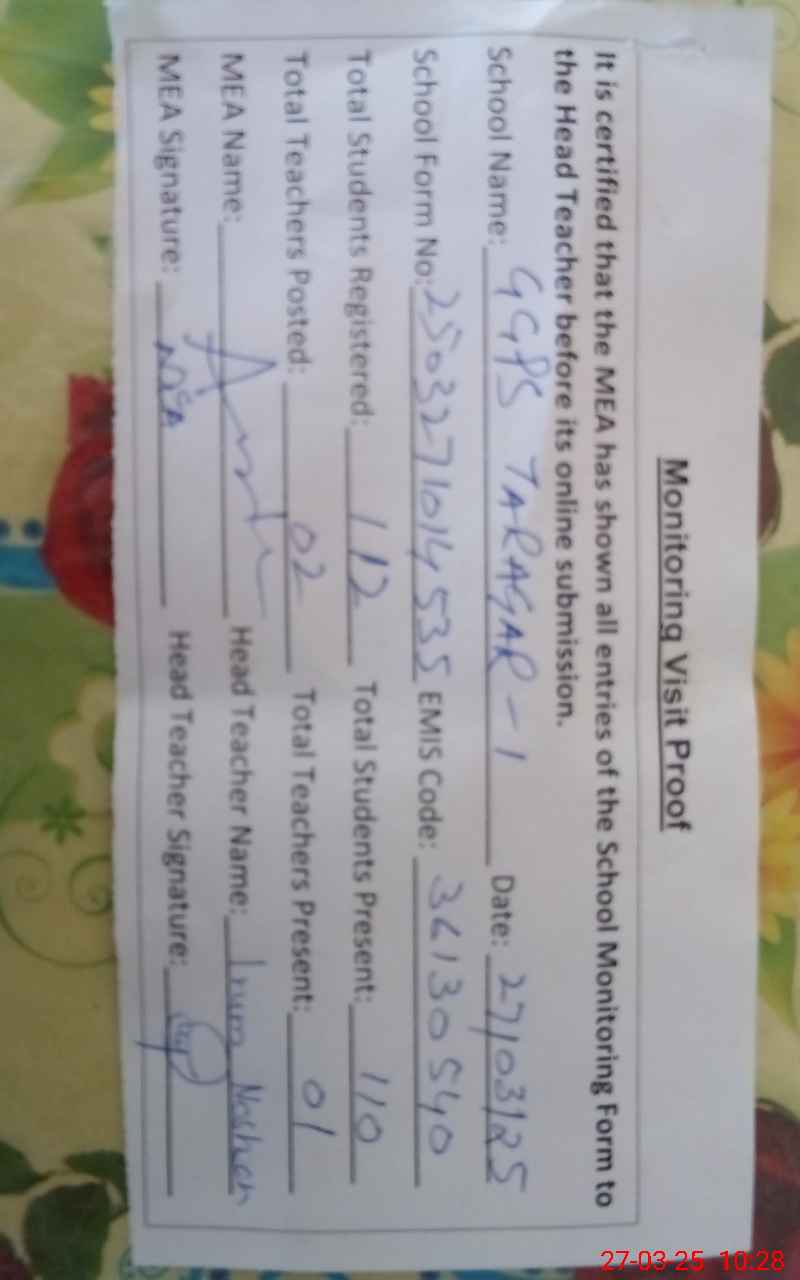 Monitoring Visit Proof
It is certified that the MEA has shown all entries of the School Monitoring Form to
the Head Teacher before its online submission.
School Name: GGPS TARAGAR-1 Date: 27/03/25
School Form No: 2503271014535 EMIS Code: 36130540
Total Students Registered: 112 Total Students Present: 110
Total Teachers Posted: 02 Total Teachers Present: 01
MEA Name: Head Teacher Name: Irum Noshen
MEA Signature: Head Teacher Signature:
27-03-25 10:28